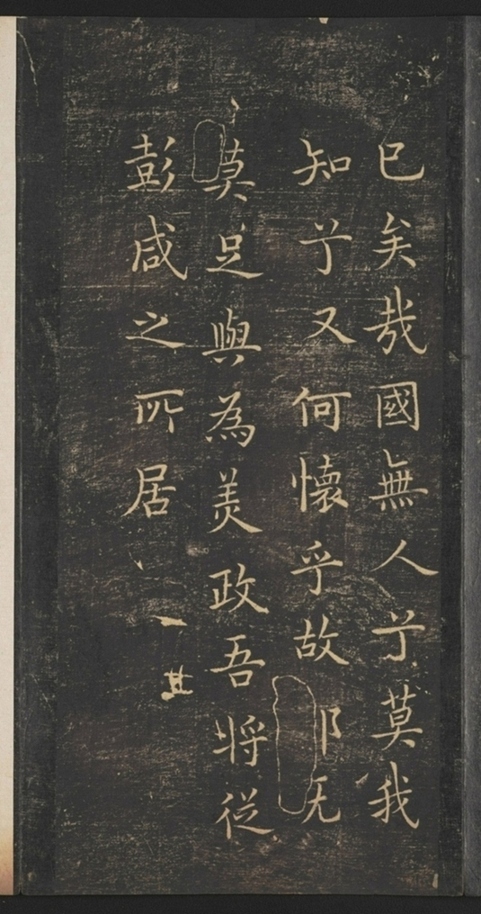 已矣哉國無人兮莫我
知兮又何懷乎故都既
莫足與為美政吾將従
彭咸之所居